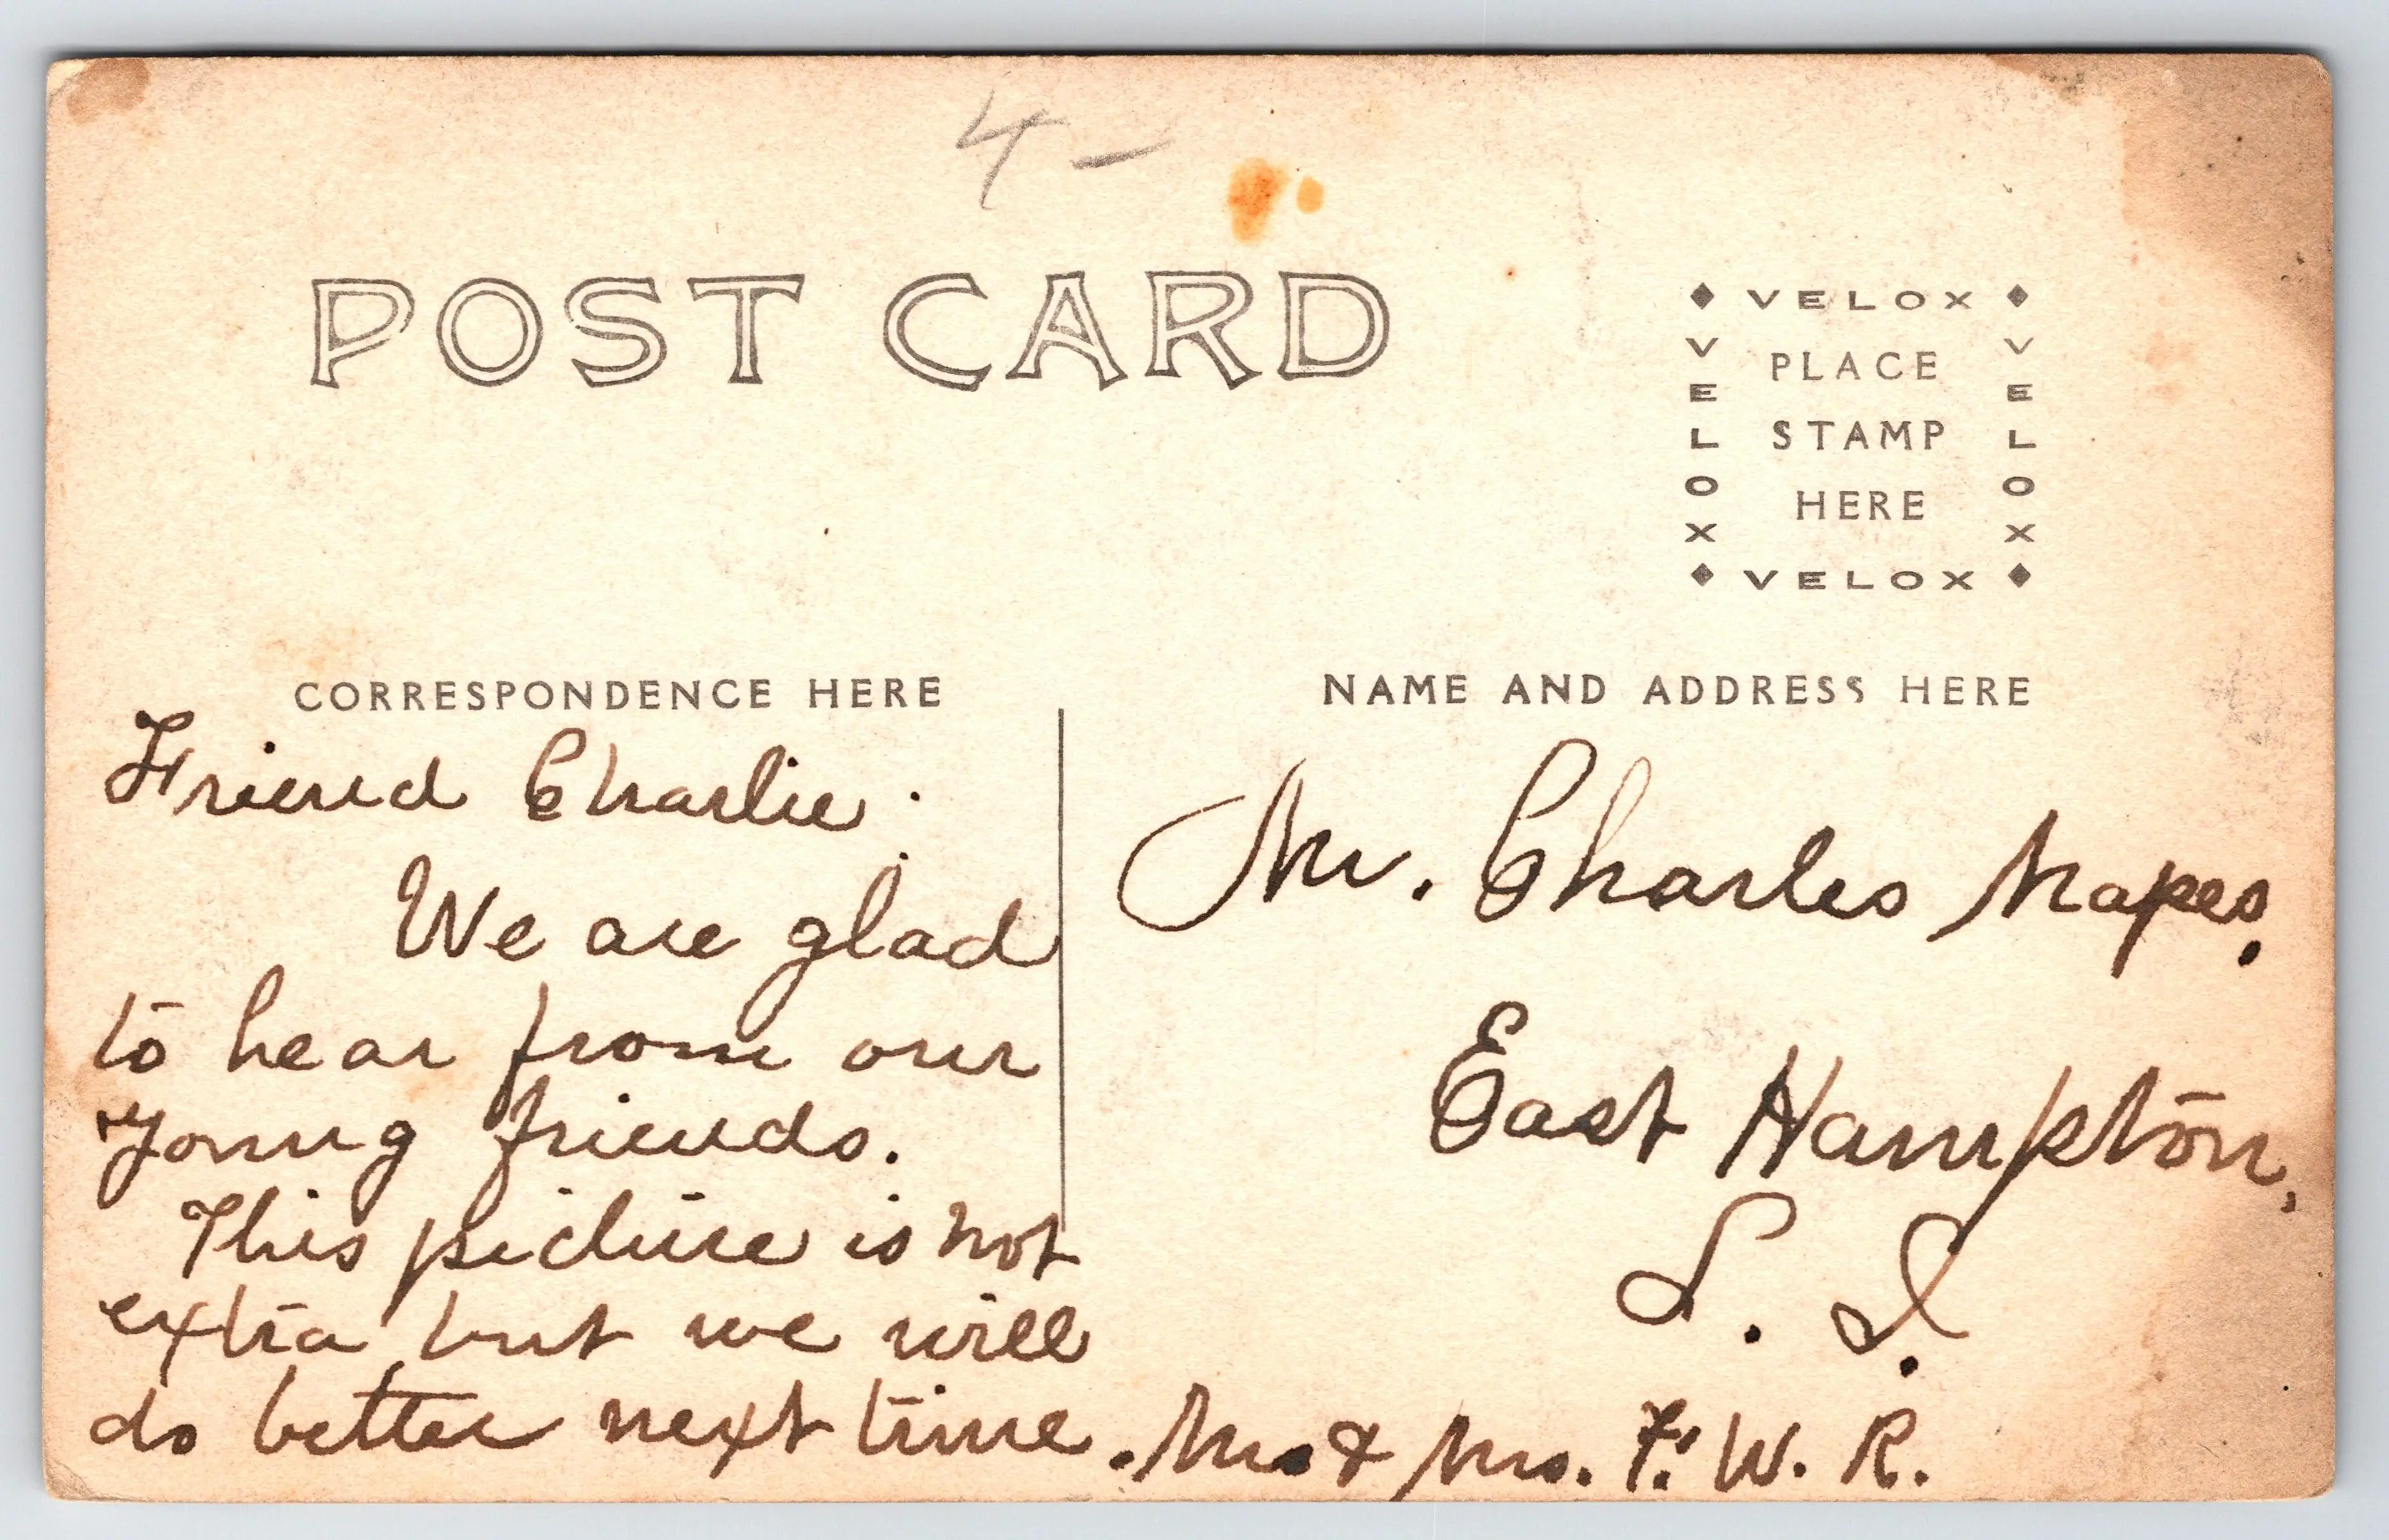 4 –
POST CARD
VELOX
VELOX
PLACE
STAMP
HERE
VELOX
VELOX
CORRESPONDENCE HERE
NAME AND ADDRESS HERE
Friend Charlie.
We are glad
to hear from our
young friends.
This picture is not
extra but we will
do better next time. Mr. & Mrs. F. W. R.
Mr. Charles Mapes.
East Hampton,
L. I.